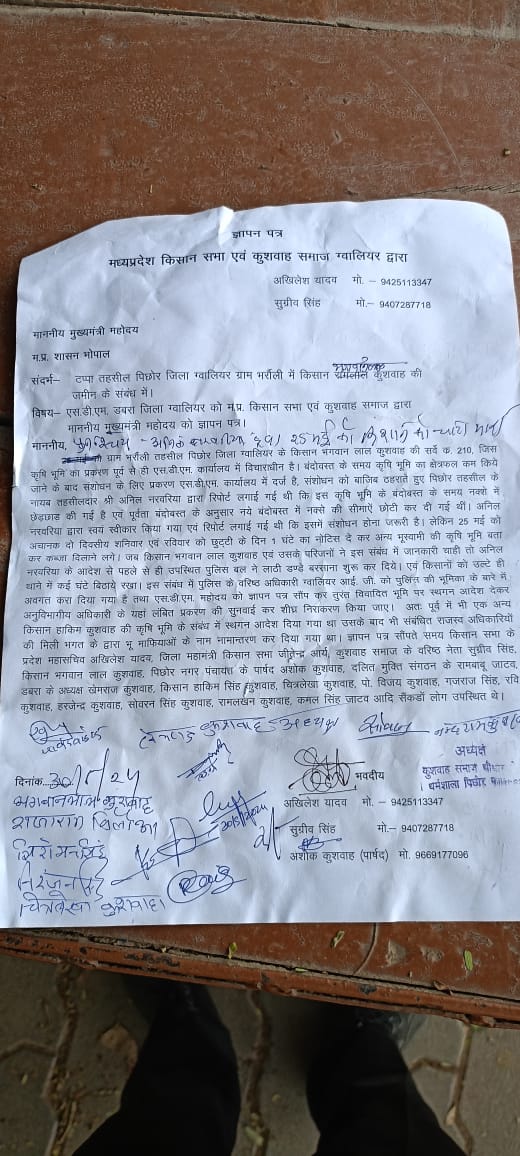 ज्ञापन पत्र
मध्यप्रदेश किसान सभा एवं कुशवाह समाज ग्वालियर द्वारा
अखिलेश यादव मो. – 9425113347
सुग्रीव सिंह मो.– 9407287718
माननीय मुख्यमंत्री महोदय
म.प्र. शासन भोपाल
संदर्भ– टप्पा तहसील पिछोर जिला ग्वालियर ग्राम भर्रोली में किसान कुशवाह की
जमीन के संबंध में।
विषय– एस.डी.एम. डबरा जिला ग्वालियर को म.प्र. किसान सभा एवं कुशवाह समाज द्वारा
माननीय मुख्यमंत्री महोदय को ज्ञापन पत्र।
माननीय, 25 मई को
ग्राम भर्रोली तहसील पिछोर जिला ग्वालियर के किसान भगवान लाल कुशवाह की सर्वे क. 210, जिस
कृषि भूमि का प्रकरण पूर्व से ही एस.डी.एम. कार्यालय में विचाराधीन है। बंदोवस्त के समय कृषि भूमि का क्षेत्रफल कम किये
जाने के बाद संशोधन के लिए प्रकरण एस.डी.एम. कार्यालय में दर्ज है, संशोधन को बाजिब ठहराते हुए पिछोर तहसील के
नायब तहसीलदार श्री अनिल नरवरिया द्वारा रिपोर्ट लगाई गई थी कि इस कृषि भूमि के बंदोवस्त के समय नक्शे में
छेड़छाड की गई है एवं पूर्वता बंदोवस्त के अनुसार नये बंदोवस्त में नक्शे की सीमाऐं छोटी कर दी गई थीं। अनिल
नरवरिया द्वारा स्वयं स्वीकार किया गया एवं रिपोर्ट लगाई गई थी कि इसमें संशोधन होना जरूरी है। लेकिन 25 मई को
अचानक दो दिवसीय शनिवार एवं रविवार को छुट्टी के दिन 1 घंटे का नोटिस दे कर अन्य भूस्वामी की कृषि भूमि बता
कर कब्जा दिलाने लगे। जब किसान भगवान लाल कुशवाह एवं उसके परिजनों ने इस संबंध में जानकारी चाही तो अनिल
नरवरिया के आदेश से पहले से ही उपस्थित पुलिस बल ने लाठी डण्डे बरसाना शुरू कर दिये। एवं किसानों को उल्टे ही
थाने में कई घंटे बिठाये रखा। इस संबंध में पुलिस के वरिष्ठ अधिकारी ग्वालियर आई. जी. को पुलिस की भूमिका के बारे में
अवगत करा दिया गया है तथा एस.डी.एम. महोदय को ज्ञापन पत्र सौंप कर तुरंत विवादित भूमि पर स्थगन आदेश देकर
अनुविभागीय अधिकारी के यहां लंबित प्रकरण की सुनवाई कर शीघ्र निराकरण किया जाए। अतः पूर्व में भी एक अन्य
किसान हाकिम कुशवाह की कृषि भूमि के संबंध में स्थगन आदेश दिया गया था उसके बाद भी संबंधित राजस्व अधिकारियों
की मिली भगत के द्वारा भू माफिआओं के नाम नामान्तरण कर दिया गया था। ज्ञापन पत्र सौंपते समय किसान सभा के
प्रदेश महासचिव अखिलेश यादव, जिला महामंत्री किसान सभा जीतेन्द्र आर्य, कुशवाह समाज के वरिष्ठ नेता सुग्रीव सिंह,
किसान भगवान लाल कुशवाह, पिछोर नगर पंचायत के पार्षद अशोक कुशवाह, दलित मुक्ति संगठन के रामबाबू जाटव,
डबरा के अध्यक्ष खेमराज कुशवाह, किसान हाकिम सिंह कुशवाह, चित्रलेखा कुशवाह, पो. विजय कुशवाह, गजराज सिंह, रवि
कुशवाह, हरजेन्द्र कुशवाह, सोवरन सिंह कुशवाह, रामलखन कुशवाह, कमल सिंह जाटव आदि सैंकडों लोग उपस्थित थे।
कुशवाह अध्यक्ष
अध्यक्ष
कुशवाह समाज
धर्मशाला पिछोर
दिनांक. 30/5/24
भवदीय
भगवानलाल कुशवाह
अखिलेश यादव मो. – 9425113347
राजाराम
30/5/2024
सुग्रीव सिंह मो.– 9407287718
अशोक कुशवाह (पार्षद) मो. 9669177096
चित्रलेखा कुशवाहा